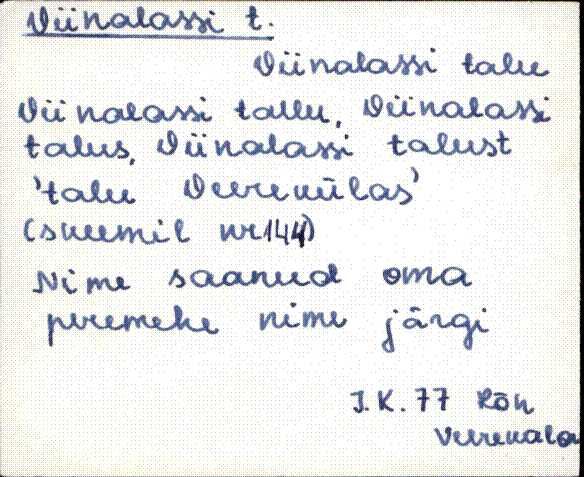 Viinalassi t.
Viinalassi talu
Viinalassi tallu, Viinalassi
talus, Viinalassi talust
'talu Veerekülas'
(skeemil nr 144)
Nime saanud oma
peremehe nime järgi
J.K. 77 Rõn